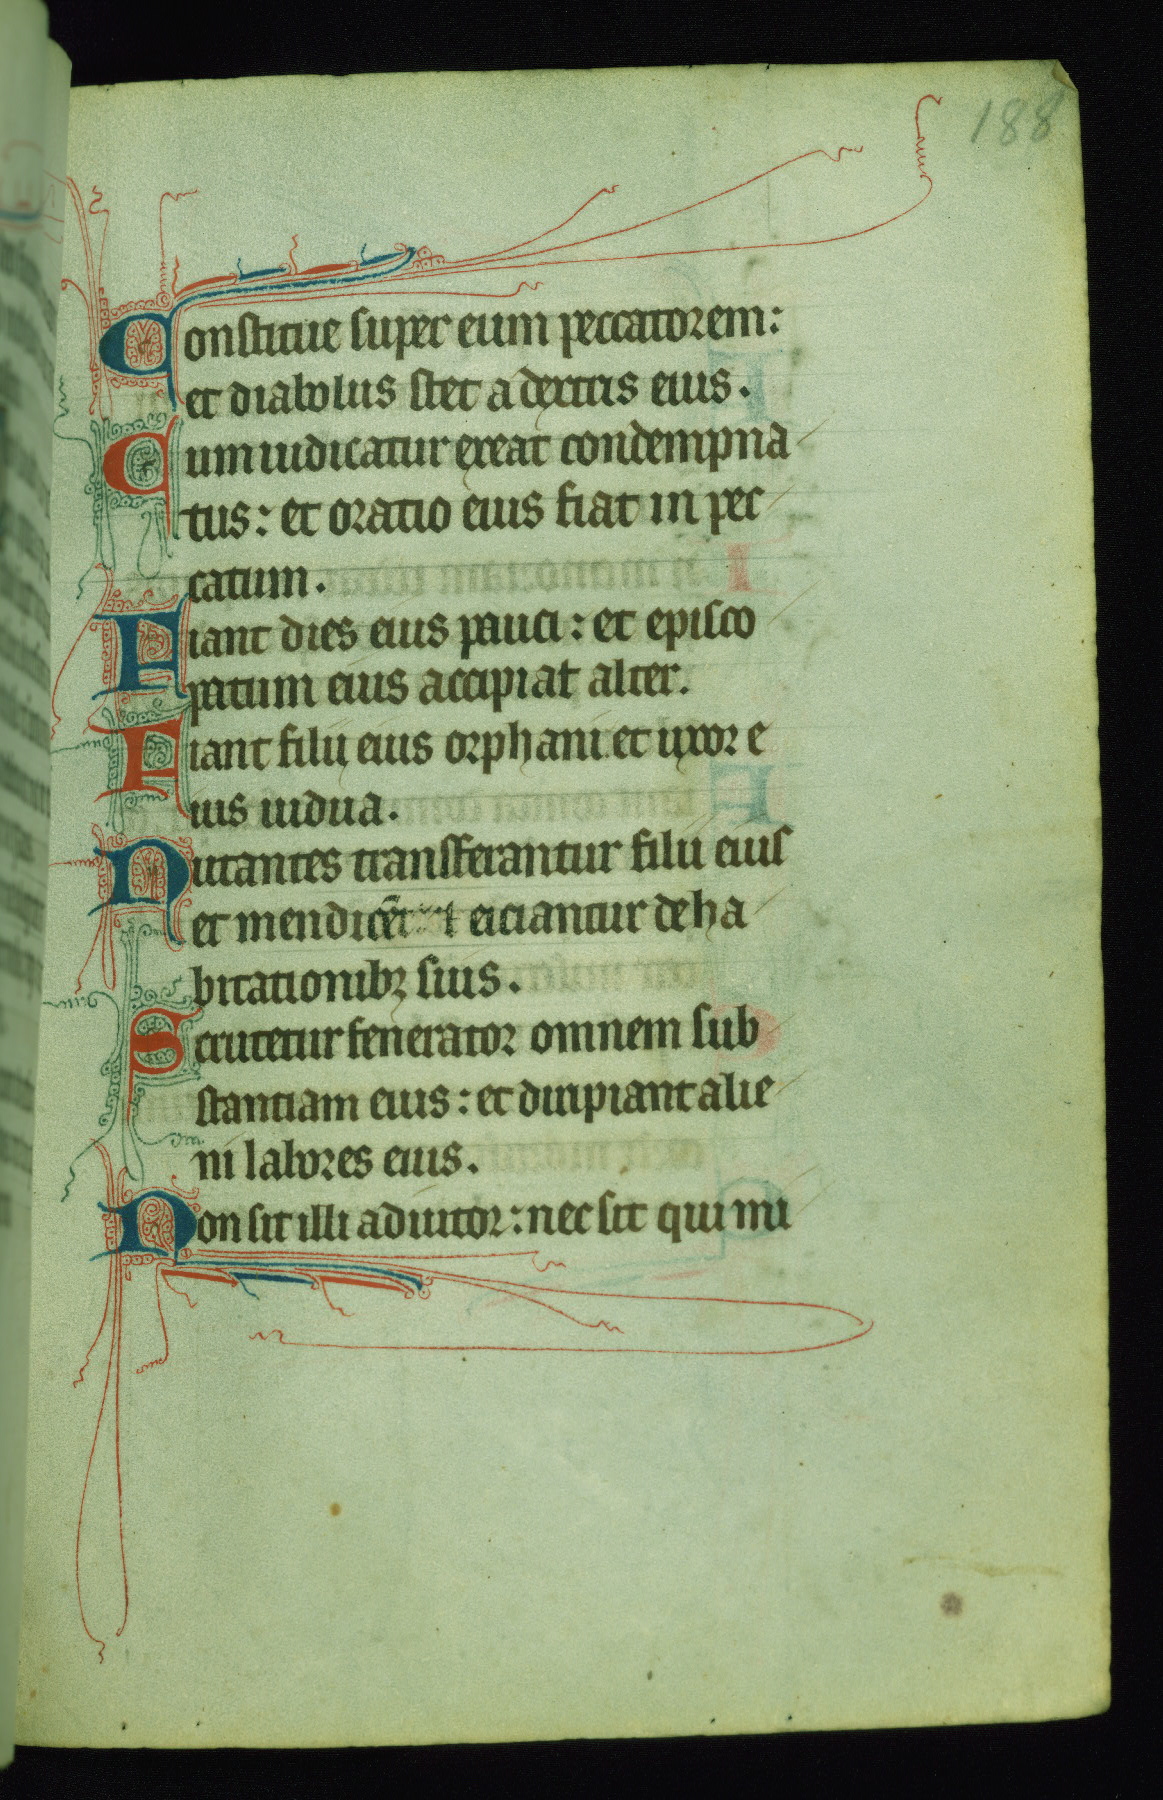 188
Constitue super eum peccatorem:
et diabolus stet a dextris eius.
Cum iudicatur exeat condempna
tus: et oratio eius fiat in pec
catum.
Fiant dies eius pauci: et episco
patum eius accipiat alter.
Fiant filii eius orphani et uxor e
ius uidua.
Nutantes transferantur filii eius
et mendicēt eiciantur de ha
bitationibꝫ suis.
Scrutetur fenerator omnem sub
stantiam eius: et diripiant alie
ni labores eius.
Non sit illi adiutor: nec sit qui mi